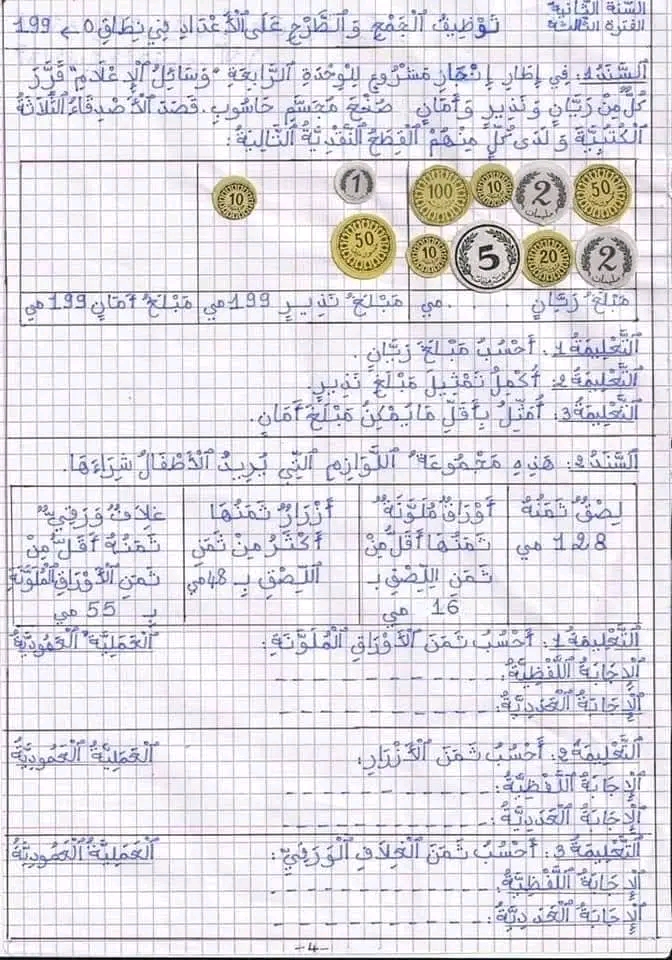 السنة الثانية
الفترة الثالثة
تَوْظِيفُ الْجَمْعِ وَالطَّرْحِ عَلَى الْأَعْدَادِ فِي نِطَاقِ 0 ← 199
السَّنَدُ 1: فِي إِطَارِ إِنْجَازِ مَشْرُوعٍ لِلْوَحْدَةِ الرَّابِعَةِ "وَسَائِلُ الْإِعْلَامِ" قَرَّرَ
كُلٌّ مِنْ رَيَّانٍ وَنَذِيرٍ وَأَمَانٍ صُنْعَ مُجَسَّمِ حَاسُوبٍ. قَصَدَ الْأَصْدِقَاءُ الثَّلَاثَةُ
الْكُتُبِيَّةَ وَلَدَى كُلٍّ مِنْهُمْ الْقِطَعُ النَّقْدِيَّةُ التَّالِيَةُ:
100 10 2 50
10 5 20 2
1
50
10
مَبْلَغُ رَيَّانٍ . مي
مَبْلَغُ نَذِيرٍ 199 مي
مَبْلَغُ أَمَانٍ 199 مي
التَّعْلِيمَةُ 1: أَحْسُبُ مَبْلَغَ رَيَّانٍ.
التَّعْلِيمَةُ 2: أُكْمِلُ تَمْثِيلَ مَبْلَغِ نَذِيرٍ.
التَّعْلِيمَةُ 3: أُمَثِّلُ بِأَقَلِّ مَا يُمْكِنُ مَبْلَغَ أَمَانٍ.
السَّنَدُ 2: هَذِهِ مَجْمُوعَةُ اللَّوَازِمِ الَّتِي يُرِيدُ الْأَطْفَالُ شِرَاءَهَا.
لِصْقٌ ثَمَنُهُ
128 مي
أَوْرَاقٌ مُلَوَّنَةٌ
ثَمَنُهَا أَقَلُّ مِنْ
ثَمَنِ اللِّصْقِ بِـ
16 مي
أَزْرَارٌ ثَمَنُهَا
أَكْثَرُ مِنْ ثَمَنِ
اللِّصْقِ بِـ 48 مي
غِلَافٌ وَرَقِيٌّ
ثَمَنُهُ أَقَلُّ مِنْ
ثَمَنِ الْأَوْرَاقِ الْمُلَوَّنَةِ
بِـ 55 مي
التَّعْلِيمَةُ 1: أَحْسُبُ ثَمَنَ الْأَوْرَاقِ الْمُلَوَّنَةِ: الْعَمَلِيَّةُ الْعَمُودِيَّةُ
الْإِجَابَةُ اللَّفْظِيَّةُ:
الْإِجَابَةُ الْعَدَدِيَّةُ:
التَّعْلِيمَةُ 2: أَحْسُبُ ثَمَنَ الْأَزْرَارِ: الْعَمَلِيَّةُ الْعَمُودِيَّةُ
الْإِجَابَةُ اللَّفْظِيَّةُ:
الْإِجَابَةُ الْعَدَدِيَّةُ:
التَّعْلِيمَةُ 3: أَحْسُبُ ثَمَنَ الْغِلَافِ الْوَرَقِيِّ: الْعَمَلِيَّةُ الْعَمُودِيَّةُ
الْإِجَابَةُ اللَّفْظِيَّةُ:
الْإِجَابَةُ الْعَدَدِيَّةُ:
-4-